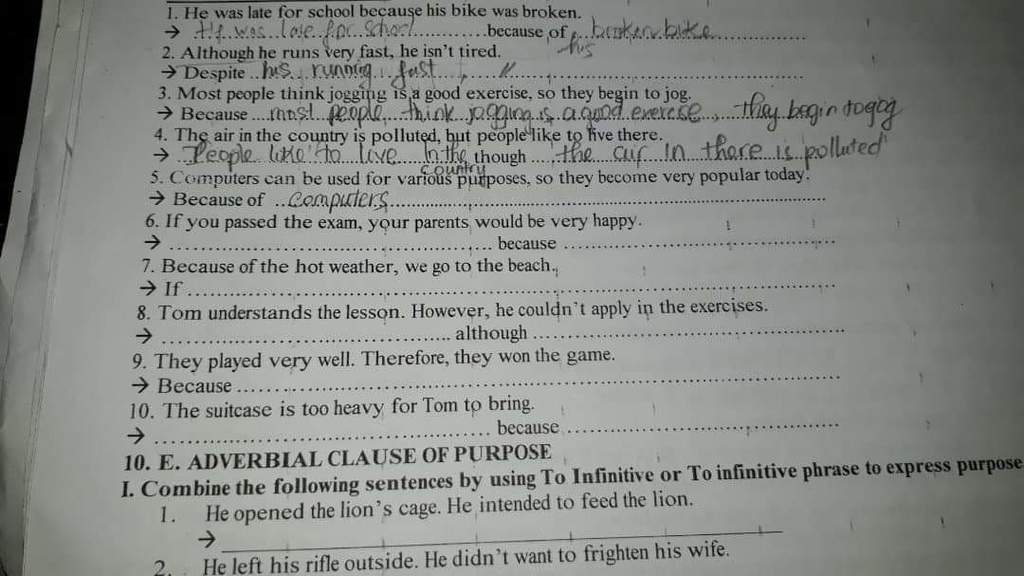 1. He was late for school because his bike was broken.
→ He was late for school............because of .. broken bike..................
his
2. Although he runs very fast, he isn't tired.
→ Despite ..his running fast ..................................................
3. Most people think jogging is a good exercise, so they begin to jog.
→ Because ....most people think jogging is a good exerese, they begin to gog
4. The air in the country is polluted, but people like to live there.
→ ..People like to live.....in the though ....the air in there is polluted
country
5. Computers can be used for various purposes, so they become very popular today.
→ Because of ..Computers................................................................
6. If you passed the exam, your parents would be very happy.
→ ................................................ because ........................................
7. Because of the hot weather, we go to the beach.
→ If ................................................................................................
8. Tom understands the lesson. However, he couldn't apply in the exercises.
→ ........................................... although ..............................................
9. They played very well. Therefore, they won the game.
→ Because ........................................................................................
10. The suitcase is too heavy for Tom to bring.
→ ................................................ because ........................................
10. E. ADVERBIAL CLAUSE OF PURPOSE
I. Combine the following sentences by using To Infinitive or To infinitive phrase to express purpose
1. He opened the lion's cage. He intended to feed the lion.
→ ____________________
2. He left his rifle outside. He didn't want to frighten his wife.